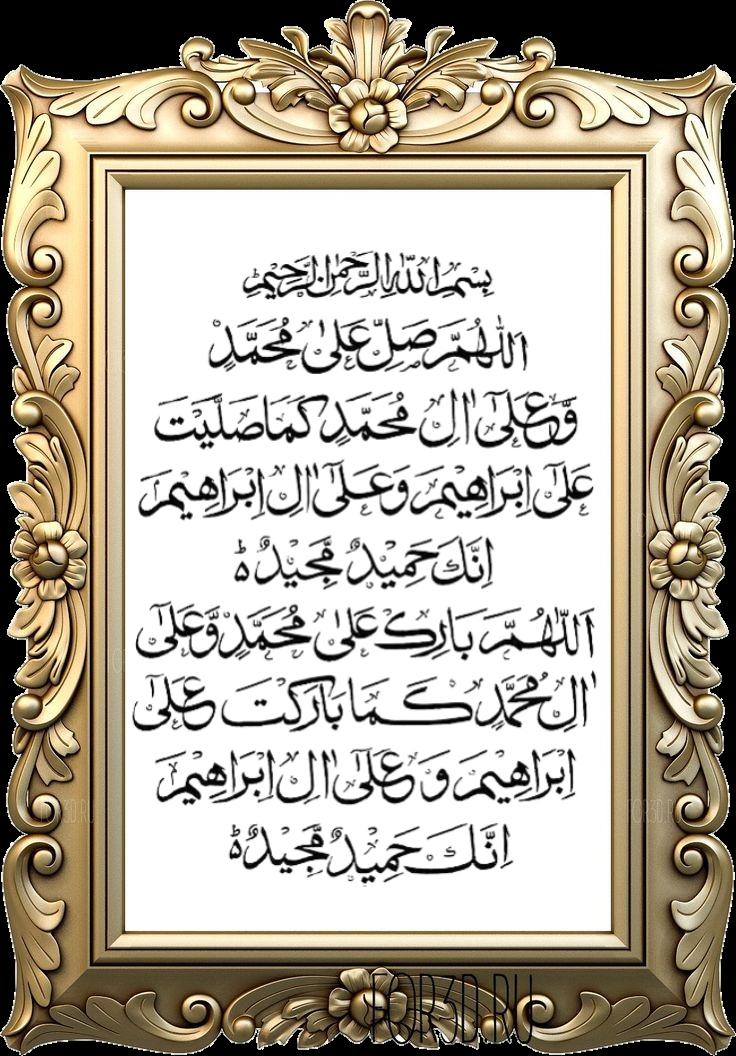 بِسْمِ اللّٰهِ الرَّحْمٰنِ الرَّحِيْمِ
اَللّٰهُمَّ صَلِّ عَلٰى مُحَمَّدٍ
وَّعَلٰٓى اٰلِ مُحَمَّدٍ كَمَا صَلَّيْتَ
عَلٰٓى اِبْرَاهِيْمَ وَعَلٰٓى اٰلِ اِبْرَاهِيْمَ
اِنَّكَ حَمِيْدٌ مَّجِيْدٌ ؕ
اَللّٰهُمَّ بَارِكْ عَلٰى مُحَمَّدٍ وَّعَلٰٓى
اٰلِ مُحَمَّدٍ كَمَا بَارَكْتَ عَلٰٓى
اِبْرَاهِيْمَ وَ عَلٰٓى اٰلِ اِبْرَاهِيْمَ
اِنَّكَ حَمِيْدٌ مَّجِيْدٌ ؕ
FOR3D.RU